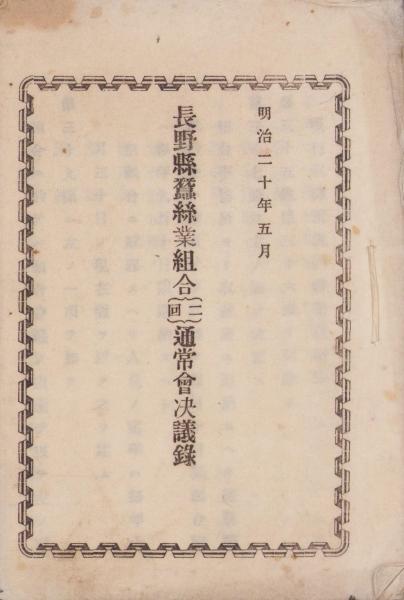 明治二十年五月
長野縣蠶絲業組合二回通常會决議錄